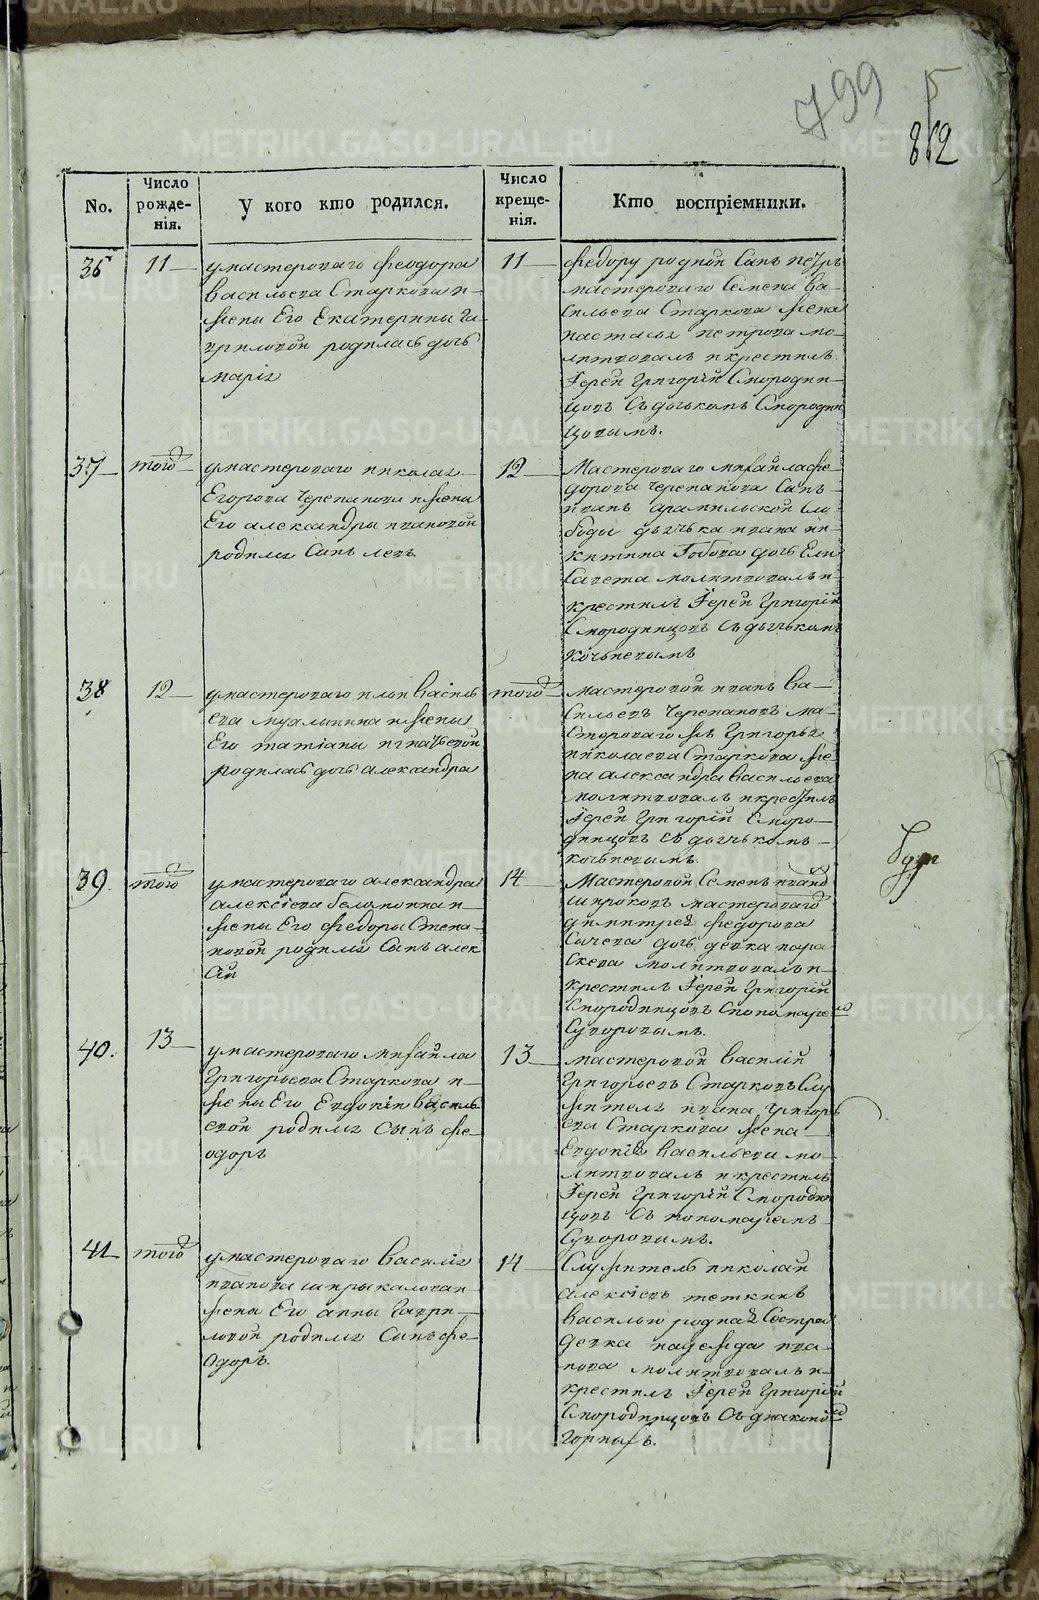 799
5
862
No.
Число рожде-нія.
У кого кто родился.
Число креще-нія.
Кто воспріемники.
36
11
умастероваго феодора
васильева Старкова и
жены Его Екатерины Га-
вриловой родилась дочь
марія
11
федору родной Сынъ петръ
мастероваго Семена Ва-
сильева Старкова жена
настасья петрова мо-
литвовалъ икрестилъ
Іерей григорій Смородин-
цовъ Съ дьячкомъ Смородин
цовымъ.
37
того
умастероваго николая
Егорова черепанова ижены
Его александры ивановой
родился Сынъ левъ
12
Мастероваго михайла фе-
дорова черепанова Сынъ
иванъ арамильской Сло-
боды дьячька ивана ни-
китина дочь Ели
савета молитвовалъ и
крестилъ Іерей григорій
Смородинцовъ Съ дьячькомъ
38
12
умастероваго ильи василь
ева ижены
Его татіаны игнатьевой
родилась дочь александра
того
мастеровой иванъ Ва-
сильевъ черепановъ ма-
стероваго григорья
николаева Старкова же
на александра васильева
молитвовалъ икрестилъ
Іерей григорій Сморо-
динцовъ съ дьячькомъ
39.
того
умастероваго александра
алексіева и
жены Его федоры Степа-
новой родился Сынъ алек
сій
14
Мастеровой Семенъ иванов
широковъ мастероваго
димитрея федорова
Сычева дочь девка пара
скева молитвовалъ и
крестилъ Іерей григорій
Смородинцовъ Спономаремъ
Суворовымъ.
40.
13
умастероваго михайла
григорьева Старкова и
жены Его Евдокіи василь
евой родился Сынъ фе-
одоръ
13
мастеровой василій
григорьевъ Старковъ Слу
жителя ивана григорь
ева Старкова жена
Евдокія васильева мо-
литвовалъ икрестилъ
Іерей григорій Смородин
цовъ Съ пономаремъ
Суворовымъ.
41
того
умастероваго василія
иванова ширыкалова и
жены Его анны Гаври-
ловой родился Сынъ фе-
одоръ.
14
Служитель николай
алексіевъ теткинъ
василью родная Сестра
девка надежда ива-
нова молитвовалъ и
крестилъ Іерей григорій
Смородинцовъ Съ діакономъ
METRIKI.GASO-URAL.RU